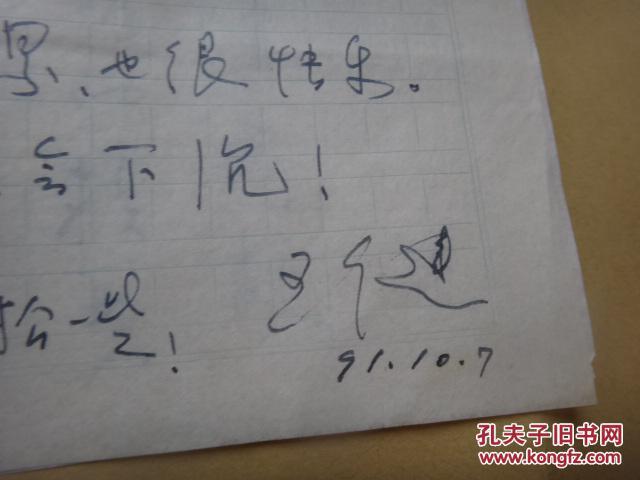 累、也很快乐。
会下沉!
给一些!
91.10.7
孔夫子旧书网
www.kongfz.com